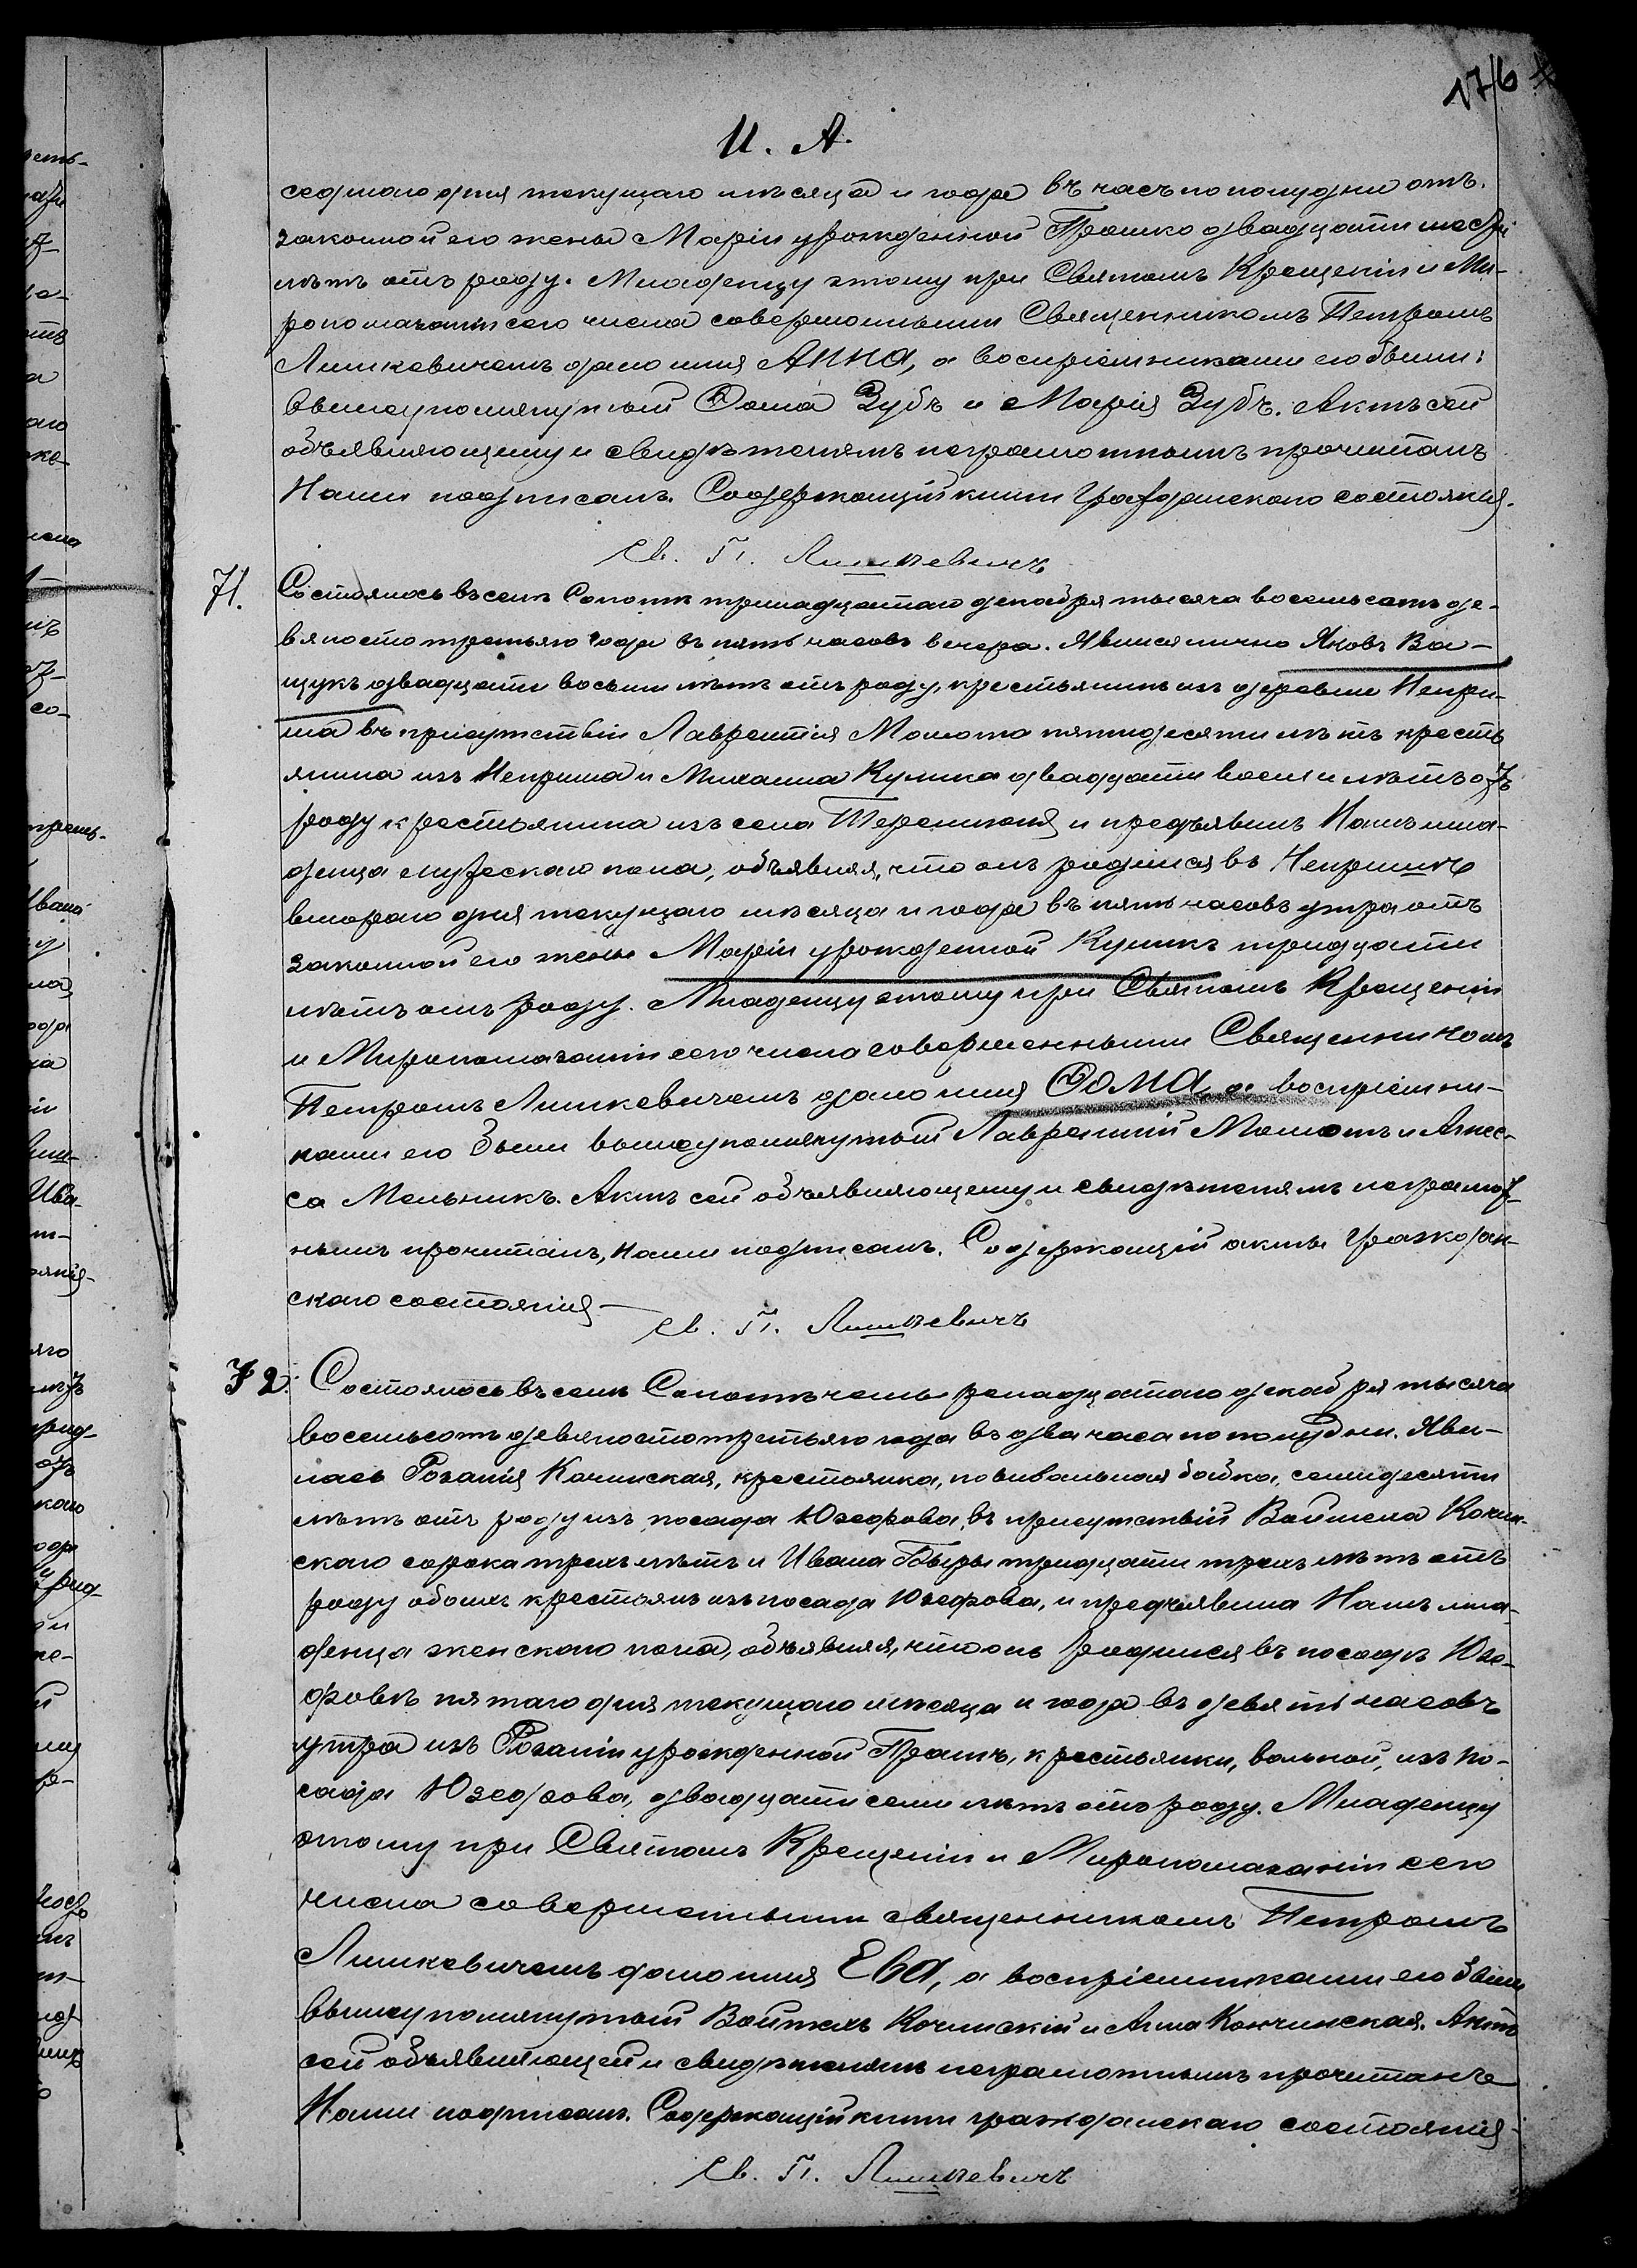 176
И. А.
седьмого дня текущаго мѣсяца и года въ часъ по полудни отъ
законной его жены Маріи урожденной Прашко двадцати шести
лѣтъ отъ роду. Младенцу этому при Святомъ Крещеніи и Ми-
ропомазаніи сего числа совершонными Священникомъ Петромъ
Лишкевичемъ дано имя Анна, а воспріемниками его были:
вышеупомянутый Ѳома Зубъ и Марія Зубъ. Актъ сей
объявляющему и свидѣтелямъ неграмотнымъ прочитанъ
Нами подписанъ. Содержащій книги Гражданскаго состоянія.
Св. П. Лишкевичъ
71.
Состоялось въ селѣ Сопотѣ тринадцатаго декабря тысяча восемьсотъ де-
вяносто третьяго года въ пять часовъ вечера. Явился лично Яковъ Ва-
щукъ двадцати восьми лѣтъ отъ роду, крестьянинъ изъ деревни Непри-
ша въ присутствіи Лаврентія Момота пятидесяти лѣтъ кресть
янина изъ Неприша и Михаила Кулика двадцати восьми лѣтъ отъ
роду крестьянина изъ села и предъявилъ Намъ мла-
денца мужескаго пола, объявляя, что онъ родился въ Непришѣ
второго дня текущаго мѣсяца и года въ пять часовъ утра отъ
законной его жены Маріи урожденной Куликъ тридцати
лѣтъ отъ роду. Младенцу этому при Святомъ Крещеніи
и Миропомазаніи сего числа совершенными Священникомъ
Петромъ Лишкевичемъ дано имя Ѳома, а воспріемни-
ками его были вышеупомянутый Лаврентій Момотъ и Агнес-
са Мельникъ. Актъ сей объявляющему и свидѣтелямъ неграмот-
нымъ прочитанъ, Нами подписанъ. Содержащій акты Граждан-
скаго состоянія
Св. П. Лишкевичъ
72.
Состоялось въ селѣ Сопотѣ четырнадцатаго декабря тысяча
восемьсотъ девяносто третьяго года въ два часа по полудни. Яви-
лась Розалія Кочинская, крестьянка, повивальная бабка, семидесяти
лѣтъ отъ роду изъ посада Юзефова, въ присутствіи Войтеха Кочин-
скаго сорока трехъ лѣтъ и Ивана Быры тридцати трехъ лѣтъ отъ
роду обоихъ крестьянъ изъ посада Юзефова, и предъявила Намъ мла-
денца женскаго пола, объявляя, что онъ родился въ посадѣ Юзе-
фовѣ пятаго дня текущаго мѣсяца и года въ девять часовъ
утра изъ Розаліи урожденной крестьянки, вольной, изъ по-
сада Юзефова, двадцати семи лѣтъ отъ роду. Младенцу
этому при Святомъ Крещеніи и Миропомазаніи сего
числа совершонными священникомъ Петромъ
Лишкевичемъ дано имя Ева, а воспріемниками его были
вышеупомянутый Войтехъ Кочинскій и Анна Кончинская. Актъ
сей объявляющей и свидѣтелямъ неграмотнымъ прочитанъ
Нами подписанъ. Содержащій книги гражданскаго состоянія
Св. П. Лишкевичъ